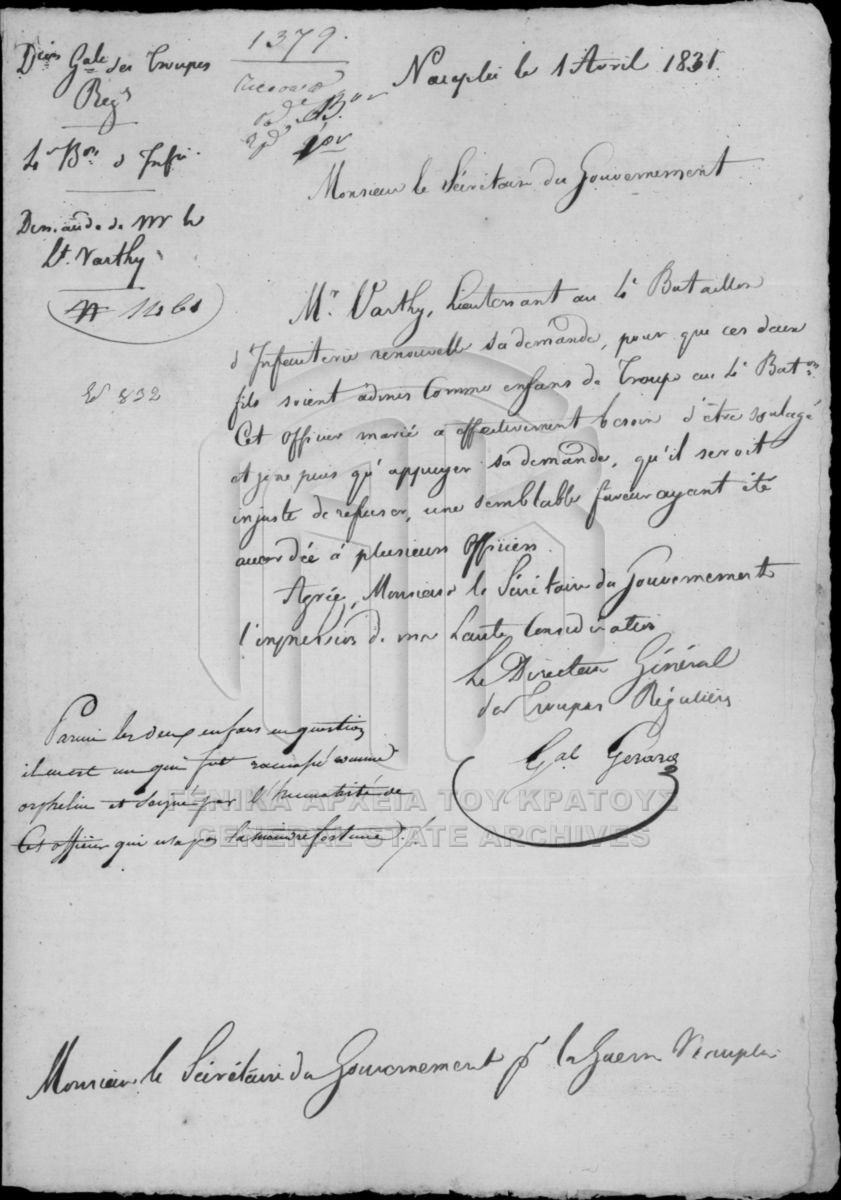 D.ion Gale des Troupes
Reg.s
4e B.on d'Infie
Demande de Mr le
Lt. Varthy
N 1461
1379.
Nauplie le 1 Avril 1831.
Monsieur le Sécrétaire du Gouvernement
Mr. Varthy, Lieutenant au 4e Bataillon
d'Infanterie renouvelle sa demande, pour que ces deux
fils soient admis comme enfans de Troupe au 4e Baton.
Cet officier marié a effectivement besoin d'être soulagé
et je ne puis qu'appuyer sa demande, qu'il seroit
injuste de refuser, une semblable faveur ayant été
accordée à plusieurs officiers.
Agréez, Monsieur le Sécrétaire du Gouvernement
l'impression de ma haute Considération
Le Directeur Général
des Troupes Régulieres
Gal Gérard
Parmi les deux enfans en question
il en est un qui fut
orphelin et soigné par l'humanité de
Cet officier qui n'a pas la moindre fortune
ΓΕΝΙΚΑ ΑΡΧΕΙΑ ΤΟΥ ΚΡΑΤΟΥΣ
GENERAL STATE ARCHIVES
Monsieur le Sécrétaire du Gouvernement pr la Guerre Nauplie